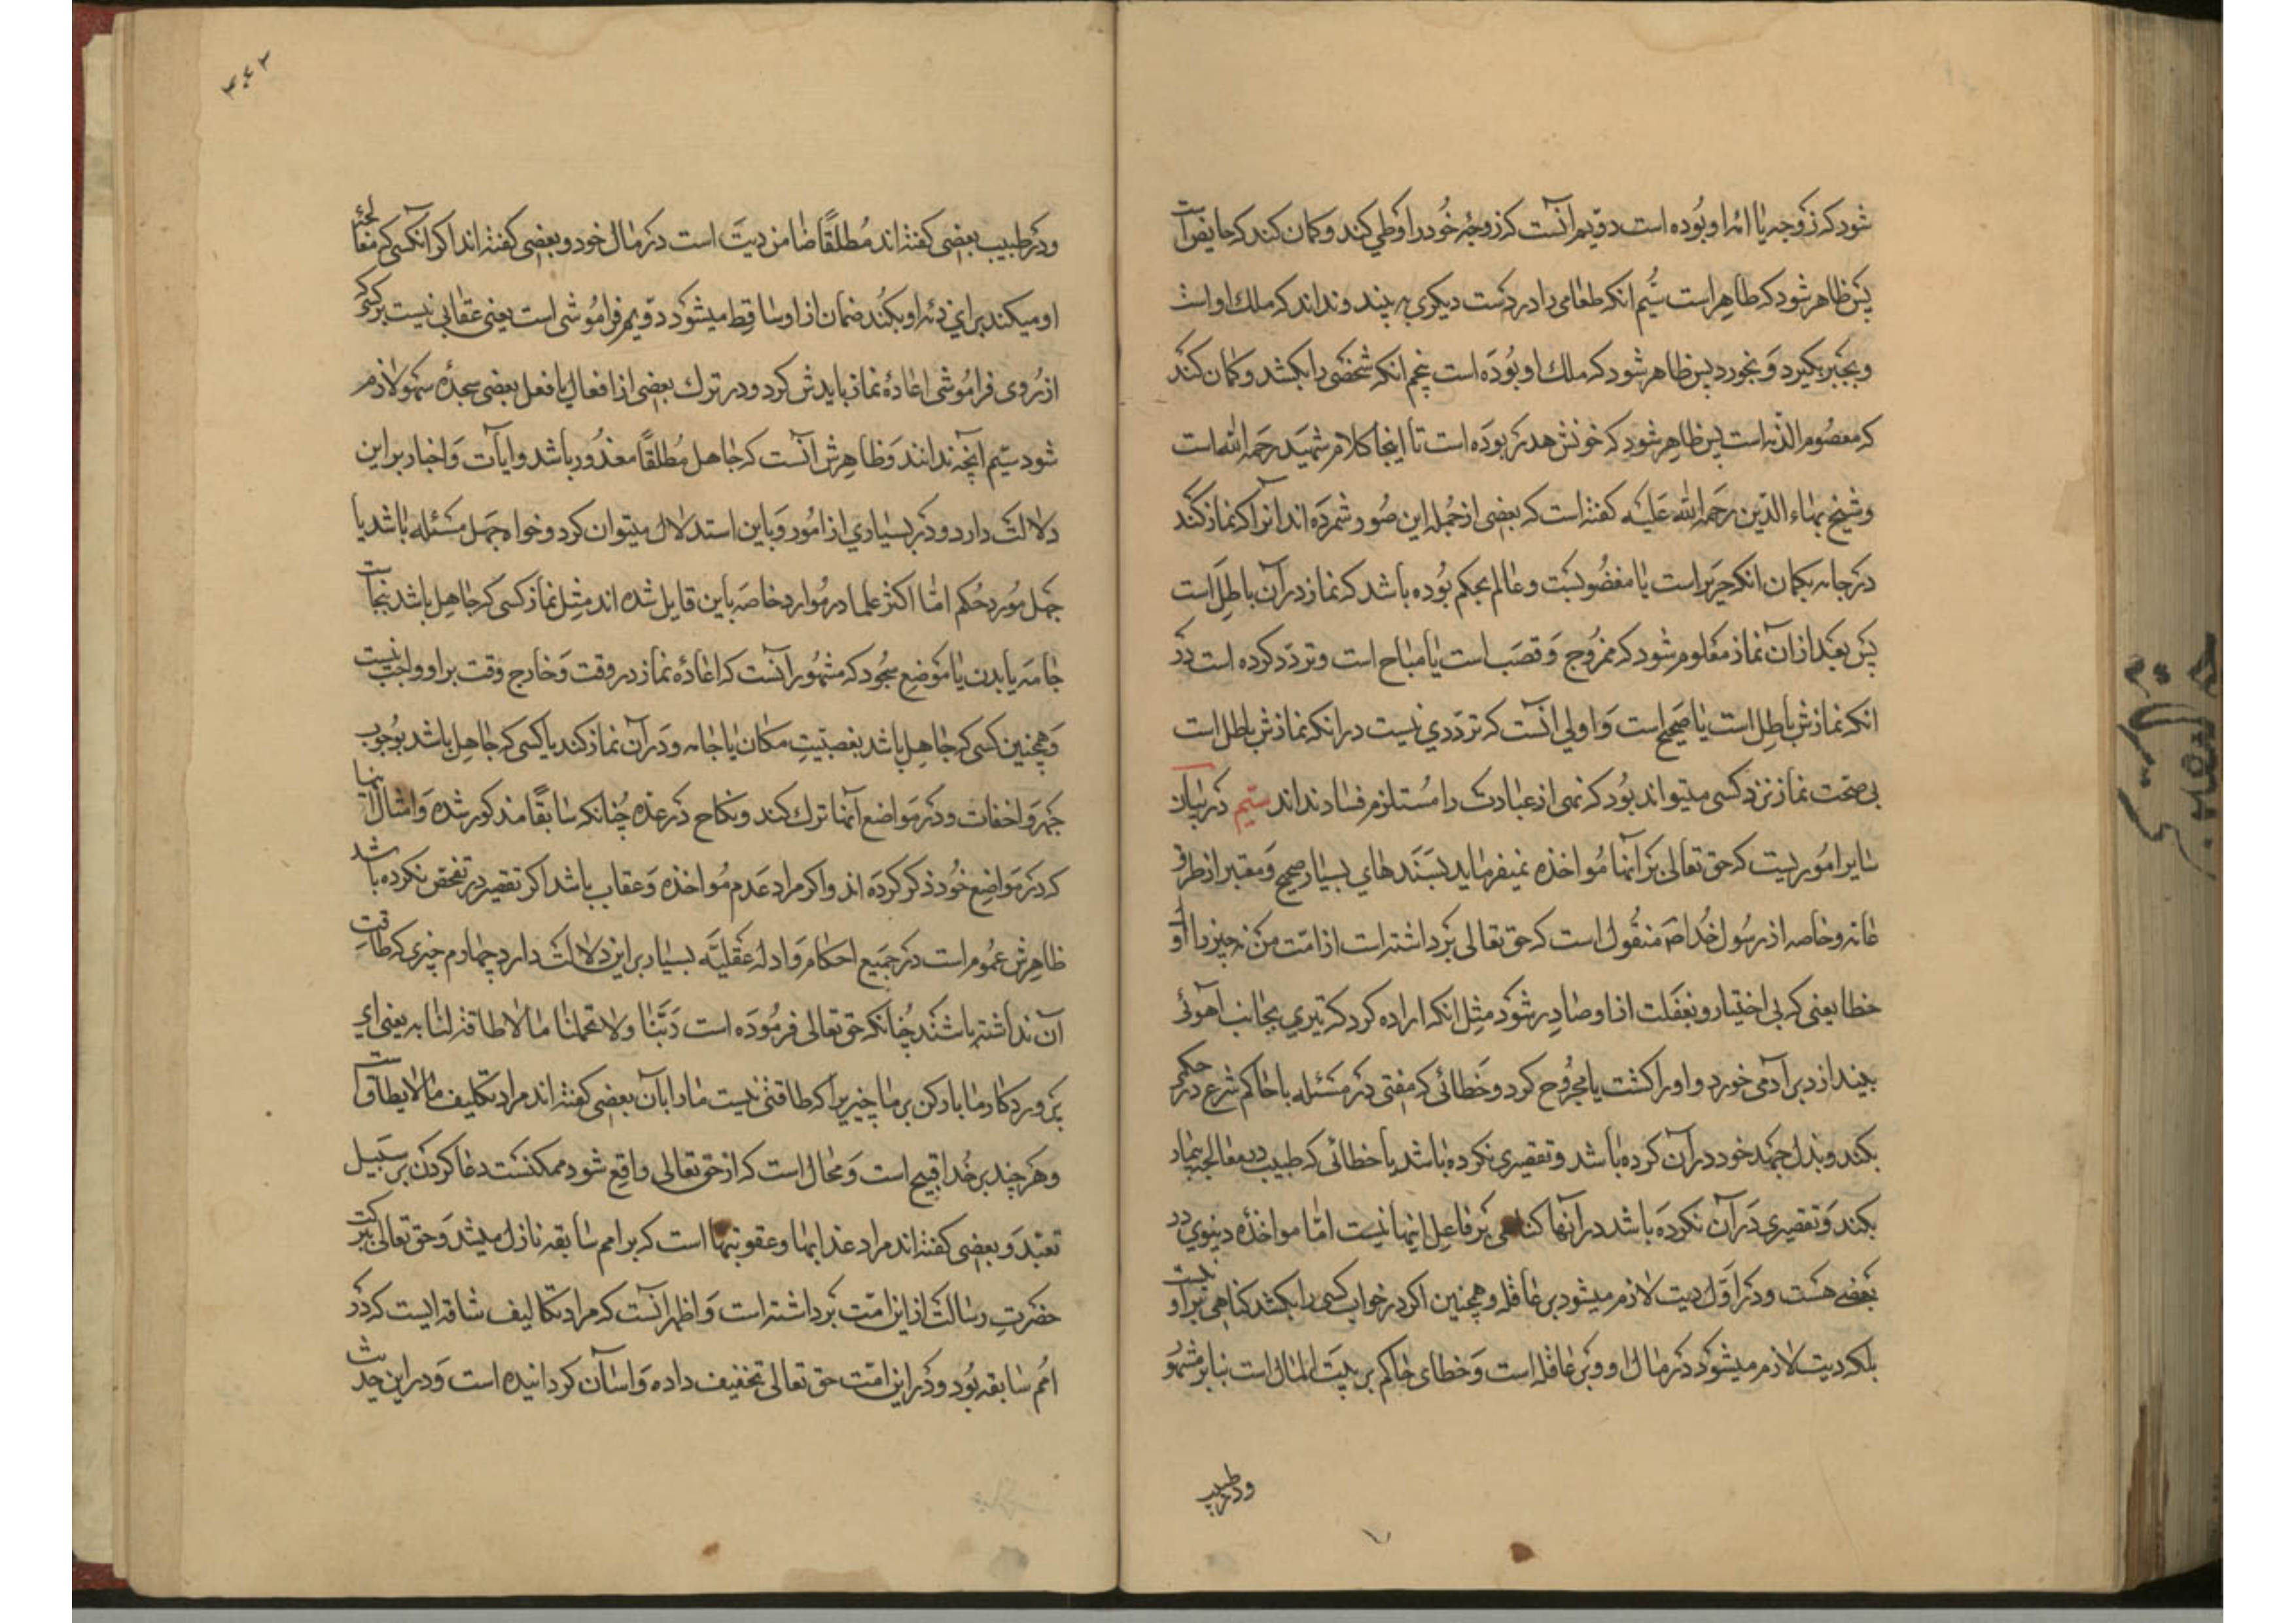 شود که زوجه یا امۀ او بوده است دویم آنست که زوجۀ خود را وطی کند و کمان کند که حایض است
پس ظاهر شود که طاهر است سیّم انکه طعامی را در دست دیکری به بیند و نداند که ملک اوست
و بجبر بکیرد و بخورد پس ظاهر شود که ملک او بوده است پنجم انکه شخصی را بکشد و کمان کند
که معصوم الدم است پس ظاهر شود که خونش هدر بوده است تا اینجا کلام شهید رحمه الله است
و شیخ بهاء الدین رحمة الله علیه کفته است که بعضی از جمله این صور شمرده اند انرا که نماز کند
در جامه بکمان انکه حریر است یا مغصوبست و عالم بحکم بوده باشد که نماز در آن باطل است
پس بعد از آن نماز معلوم شود که ممزوج و قصب است یا مباح است و تردد کرده است در
انکه نمازش باطل است یا صحیح است و اولی آنست که ترددی نیست در انکه نمازش باطل است
بی صحت نماز نزد کسی میتواند بود که نهی از عبادت را مستلزم فساد نداند سیّم در بیان
سایر امور یست که حق تعالی بر آنها مؤاخذه نمیفرماید بسندهای بسیار صحیح و معتبر از طرق
عامه و خاصه از رسول خدا ص منقول است که حق تعالی برداشته است از امت من نه چیز را اوّل
خطا یعنی که بی اختیار و بغفلت از او صادر شود مثل انکه اراده کرد که تیری بجانب آهوئی
بیندازد بر آدمی خورد و او را کشت یا مجروح کرد و خطائی که مفتی در مسئله یا حاکم شرع در حکمی
بکند و بذل جهد خود در آن کرده باشد و تقصیری نکرده باشد یا خطائی که طبیب در معالجه بیمار
بکند و تقصیری در آن نکرده باشد در آنها کناهی بر فاعل اینها نیست امّا مواخذۀ دینوی در
بعضی هست و در اوّل دیت لازم میشود بر عاقله و همچنین اکر در خواب کسی را بکشد کناهی بر او نیست
بلکه دیت لازم میشود در مال او و بر عاقله است و خطای حاکم بر بیت المال است بنا بر مشهو
ودر طبیب
۳۶۲
ودر طبیب بعضی کفته اند مطلقاً ضامن دیت است در مال خود و بعضی کفته اند اکر انکسی که معالجۀ
او میکند برای ذمّه او بکند ضمان از او ساقط میشود دویم فراموشی است یعنی عقابی نیست بر کسی که
از روی فراموشی اعادۀ نماز بایدش کرد و در ترک بعضی از افعال یا فعل بعضی سجدۀ سهو لازم
شود سیّم آنچه ندانند و ظاهرش آنست که جاهل مطلقاً معذور باشد و ایات و اخبار بر این
دلالت دارد و در بسیاری از امور و باین استدلال میتوان کرد و خواه جهل مسئله باشد یا
جهل مورد حکم امّا اکثر علما در موارد خاصه باین قایل شده اند مثل نماز کسی که جاهل باشد بنجاست
جامه یا بدن یا موضع سجود که مشهور آنست که اعادۀ نماز در وقت و خارج وقت بر او واجب نیست
و همچنین کسی که جاهل باشد بغصبیّت مکان یا جامه و در آن نماز کند یا کسی که جاهل باشد بوجوب
جهر و اخفات و در مواضع آنها ترک کند و نکاح در عده چنانکه سابقاً مذکور شده و امثال اینها
که در مواضع خود ذکر کرده اند و اکر مراد عدم مؤاخذه و عقاب باشد اکر تقصیر در تفحص نکرده باشد
ظاهرش عموم است در جمیع احکام و ادلۀ عقلیّه بسیار بر این دلالت دارد چهارم چیزی که طاقت
آن نداشته باشند چنانکه حق تعالی فرموده است ربّنا ولا تحمّلنا ما لا طاقة لنا به یعنی ای
پروردکار ما بار مکن بر ما چیزیرا که طاقتی نیست ما را بآن بعضی کفته اند مراد تکلیف ما لا یطاق است
و هرچند بر خدا قبیح است و محال است که از حق تعالی واقع شود ممکنست دعا کردن بر سبیل
تعبّد و بعضی کفته اند مراد عذابها و عقوبتها است که بر امم سابقه نازل میشد و حق تعالی ببرکت
حضرت رسالت از این امّت برداشته است و اظهر آنست که مراد تکالیف شاقه ایست که در
امم سابقه بود و در این امّت حق تعالی تخفیف داده و اسان کردانیده است و در این حدیث